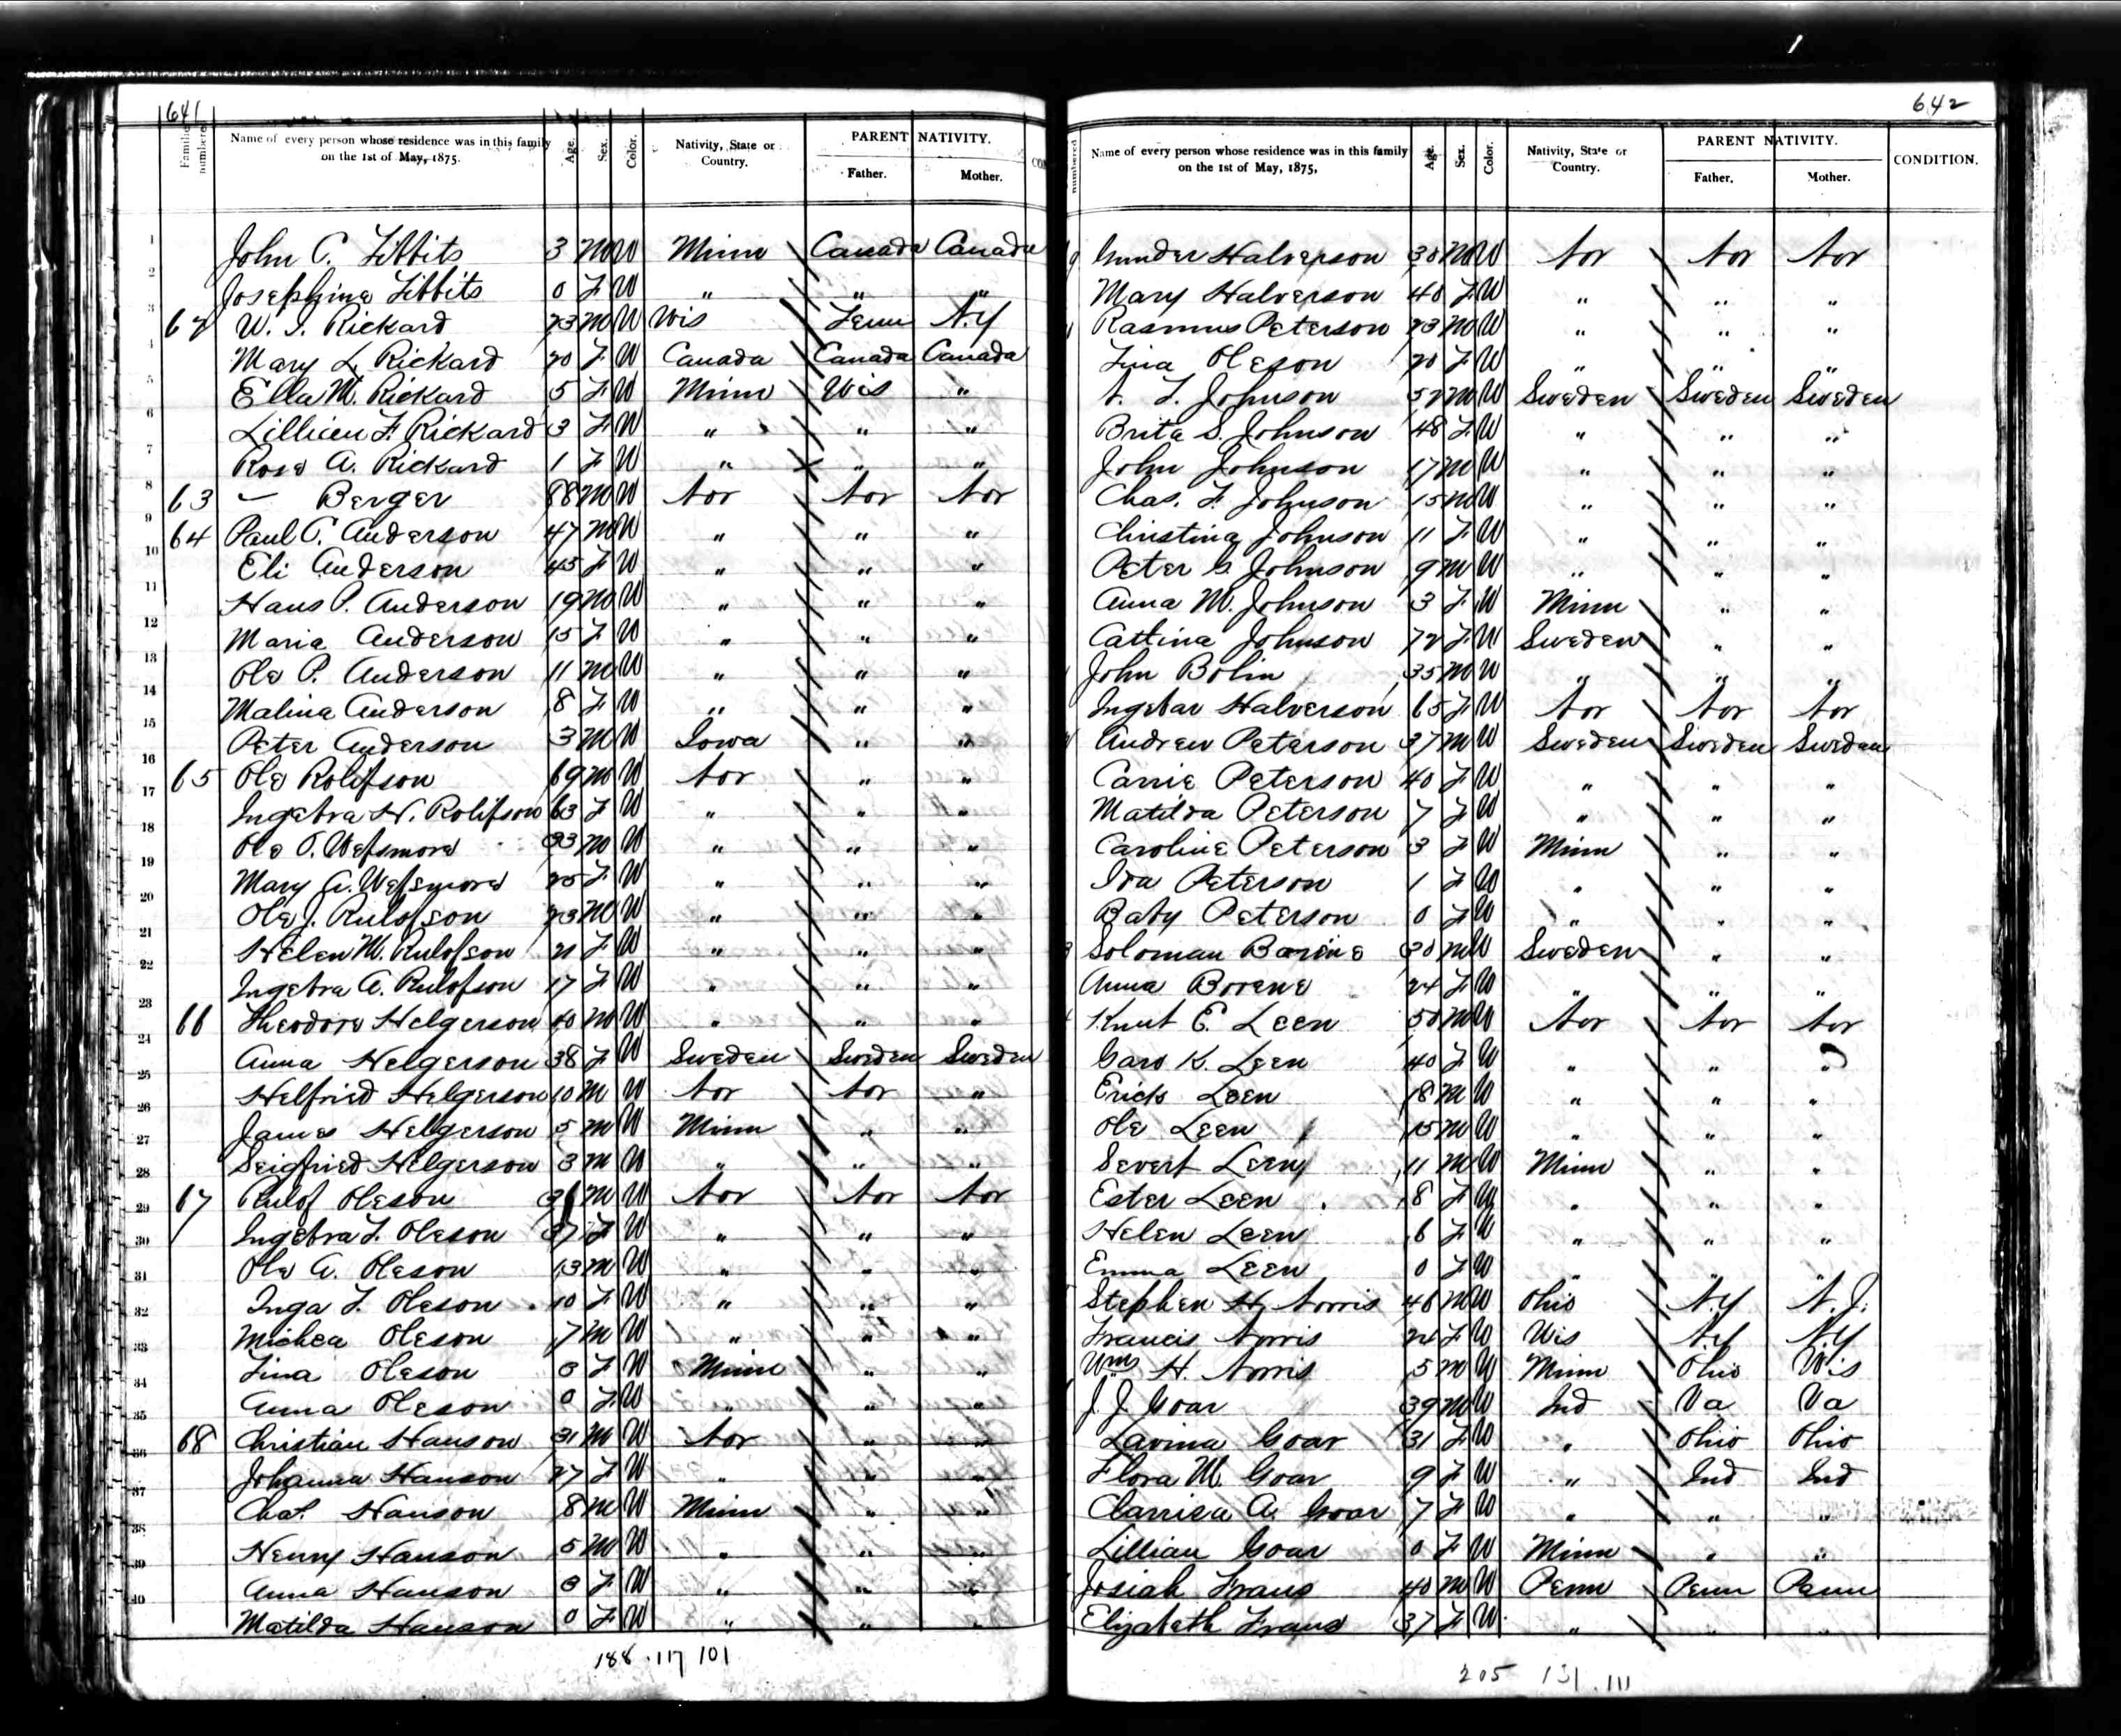 641
Families numbered
Name of every person whose residence was in this family on the 1st of May, 1875.
Age.
Sex.
Color.
Nativity, State or Country.
PARENT NATIVITY.
Father.
Mother.
1 John C. Tibbits 3 M W Minn Canada Canada
2 Josephine Tibbits 0 F W " " "
3 62 W. I. Rickard 23 M W Wis Tenn N.Y
4 Mary L Rickard 20 F W Canada Canada Canada
5 Ella M. Rickard 5 F W Minn Wis "
6 Lillien F. Rickard 3 F W " " "
7 Rosa A. Rickard 1 F W " " "
8 63 — Berger 88 M W Nor Nor Nor
9 64 Paul C. Anderson 47 M W " " "
10 Eli Anderson 45 F W " " "
11 Hans P. Anderson 19 M W " " "
12 Maria Anderson 15 F W " " "
13 Ole P. Anderson 11 M W " " "
14 Malina Anderson 8 F W " " "
15 Peter Anderson 3 M W Iowa " "
16 65 Ole Rolifson 69 M W Nor " "
17 Ingebra H. Rolifson 63 F W " " "
18 Ole O. Wefsmore 33 M W " " "
19 Mary A. Wefsmore 25 F W " " "
20 Ole J. Rulofson 23 M W " " "
21 Helen M. Rulofson 21 F W " " "
22 Ingebra A. Rulofson 17 F W " " "
23 66 Theodore Helgerson 40 M W " " "
24 Anna Helgerson 38 F W Sweden Sweden Sweden
25 Helfried Helgerson 10 M W Nor Nor "
26 James Helgerson 5 M W Minn " "
27 Seigfried Helgerson 3 M W " " "
28 67 Rulof Oleson M W Nor Nor Nor
29 Ingebra T. Oleson 37 F W " " "
30 Ole A. Oleson 13 M W " " "
31 Inga T. Oleson 10 F W " " "
32 Michea Oleson 7 M W " " "
33 Tina Oleson 3 F W Minn " "
34 Anna Oleson 0 F W " " "
35 68 Christian Hanson 31 M W Nor " "
36 Johanna Hanson 27 F W " " "
37 Chas. Hanson 8 M W Minn " "
38 Henry Hanson 5 M W " " "
39 Anna Hanson 3 F W " " "
40 Matilda Hanson 0 F W " " "
188 . 117 101
642
numbered
Name of every person whose residence was in this family on the 1st of May, 1875,
Age.
Sex.
Color.
Nativity, State or Country.
PARENT NATIVITY.
Father.
Mother.
CONDITION.
9 Gunder Halverson 30 M W Nor Nor Nor
Mary Halverson 40 F W " " "
Rasmus Peterson 23 M W " " "
Tina Oleson 20 F W " " "
J. Johnson 52 M W Sweden Sweden Sweden
Brita S. Johnson 48 F W " " "
John Johnson 17 M W " " "
Chas. F. Johnson 15 M W " " "
Christina Johnson 11 F W " " "
Peter G. Johnson 9 M W " " "
Anna M. Johnson 3 F W Minn " "
Cattina Johnson 72 F W Sweden " "
John Bolin 35 M W " " "
Ingebar Halverson 65 F W Nor Nor Nor
Andrew Peterson 37 M W Sweden Sweden Sweden
Carrie Peterson 40 F W " " "
Matilda Peterson 7 F W " " "
Caroline Peterson 3 F W Minn " "
Ida Peterson 1 F W " " "
Baby Peterson 0 F W " " "
3 Soloman Borine 30 M W Sweden " "
Anna Borene 24 F W " " "
Knut E. Leen 50 M W Nor Nor Nor
Garo K. Leen 40 F W " " "
Erick Leen 18 M W " " "
Ole Leen 15 M W " " "
Severt Leen 11 M W Minn " "
Ester Leen 8 F W " " "
Helen Leen 6 F W " " "
Emma Leen 0 F W " " "
Stephen H. Norris 46 M W Ohio N.Y N.J.
Francis Norris 24 F W Wis N.Y N.Y
Wm H. Norris 5 M W Minn Ohio Wis
J. J. Goar 39 M W Ind Va Va
Lavina Goar 31 F W " Ohio Ohio
Flora M. Goar 9 F W " Ind Ind
Clarrisa A. Goar 7 F W " " "
Lillian Goar 0 F W Minn " "
Josiah Frans 40 M W Penn Penn Penn
Elizabeth Frans 37 F W " " "
205 131 . 111